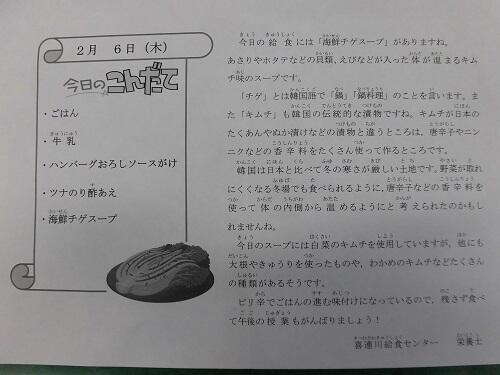 2月 6日(木)
今日のこんだて
・ごはん
・牛乳
・ハンバーグおろしソースがけ
・ツナのり酢あえ
・海鮮チゲスープ
今日の給食には「海鮮チゲスープ」がありますね。
あさりやホタテなどの貝類、えびなどが入った体が温まるキム
チ味のスープです。
「チゲ」とは韓国語で「鍋」「鍋料理」のことを言います。ま
た「キムチ」も韓国の伝統的な漬物ですね。キムチが日本の
たくあんやぬか漬けなどの漬物と違うところは、唐辛子やニン
ニクなどの香辛料をたくさん使って作るところです。
韓国は日本と比べて冬の寒さが厳しい土地です。野菜が取れ
にくくなる冬場でも食べられるように、唐辛子などの香辛料を
使って体の内側から温めるようにと考えられたのかもし
れませんね。
今日のスープには白菜のキムチを使用していますが、他にも
大根やきゅうりを使ったものや、わかめのキムチなどたくさん
の種類があるそうです。
ピリ辛でごはんの進む味付けになっているので、残さず食べ
て午後の授業もがんばりましょう!
喜連川給食センター 栄養士